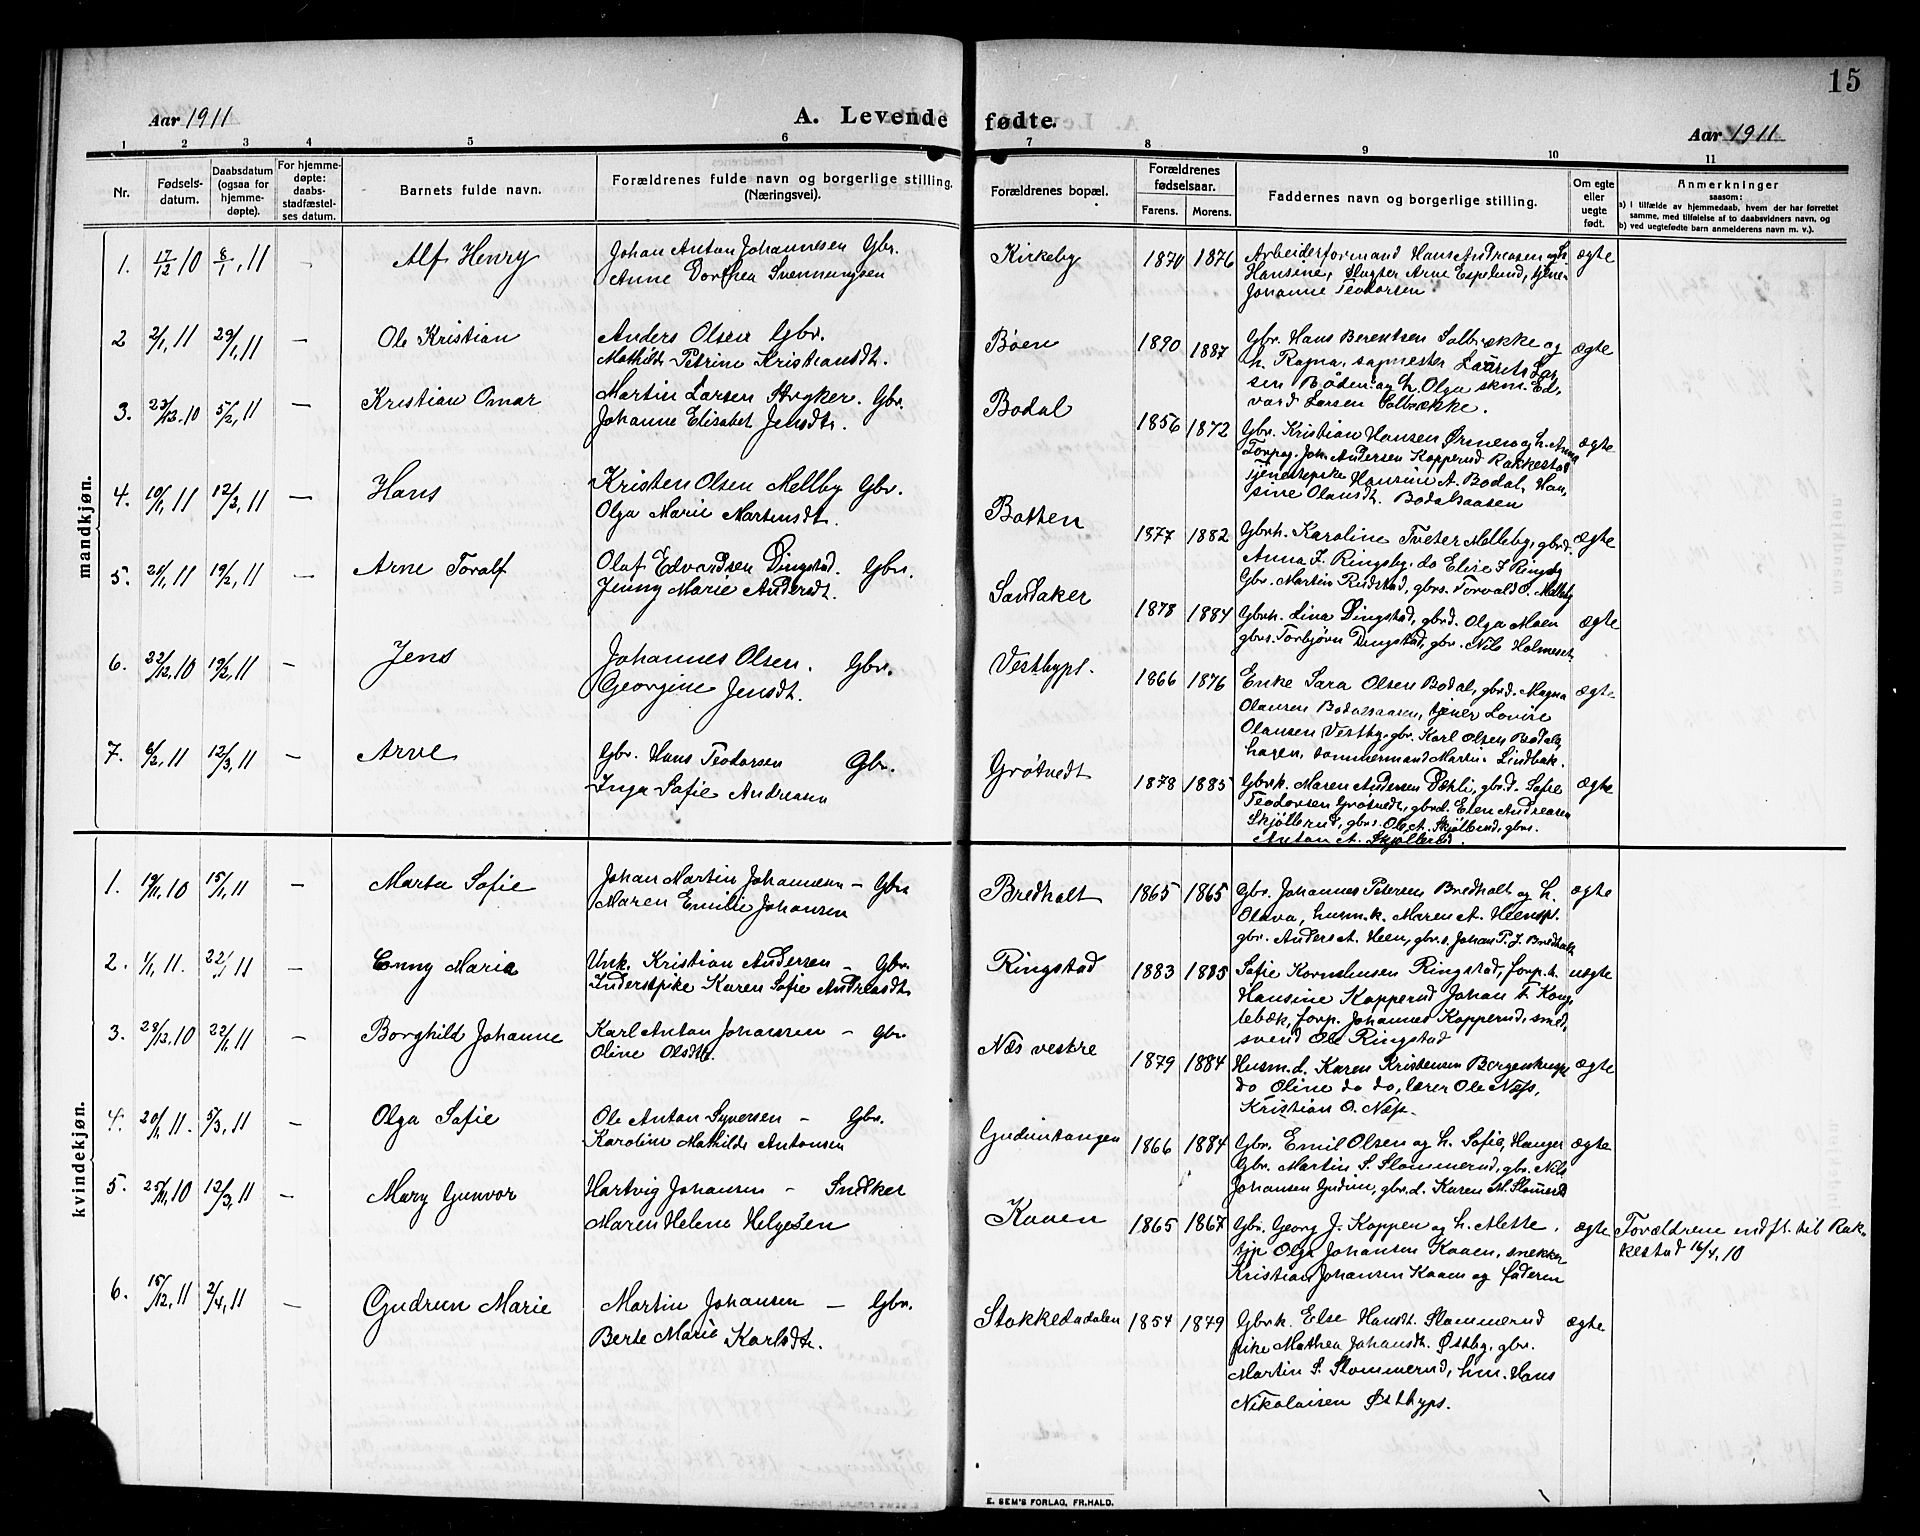 15
Aar 1911
A. Levende fødte.
Aar 1911
1 2 3 4 5 6 7 8 9 10 11
Nr.
Fødsels-
datum.
Daabsdatum
(ogsaa for
hjemme-
døpte).
For hjemme-
døpte:
daabs-
stadfæstel-
ses datum.
Barnets fulde navn.
Forældrenes fulde navn og borgerlige stilling.
(Næringsvei).
Forældrenes bopæl.
Forældrenes
fødselsaar.
Farens. Morens.
Faddernes navn og borgerlige stilling.
Om egte
eller
uegte
født.
Anmerkninger
saasom:
a) i tilfælde av hjemmedaab, hvem der har forrettet
samme, med tilføielse af to daabsvidners navn, og
b) ved uegtefødte barn anmelderens navn m. v.).
mandkjøn.
1. 17/12 10 8/1, 11 – Alf Henry
Johan Anton Johannesen Gbr.
Anne Dorthea Svenningsen
Kirkeby 1870 1876
Arbeiderformand Hans Andreassen og h.
Hansine, Slagter Arne Espelund, tjene-
Johanne Teodorsen
ægte
2 2/1, 11 29/1, 11 – Ole Kristian
Anders Olsen Gbr.
Mathilde Petrine Kristiansdt.
Bøen 1890 1887
Gbr. Hans Berentsen Solbrække og
h. Ragna, sagmester Laurits Lar-
sen Bøden og h. Olga skm. Ed-
vard Larsen Solbrække.
ægte
3. 23/12. 10 5/2, 11 – Kristian Omar
Martin Larsen Stryker. Gbr.
Johanne Elisabet Jensdtr.
Bodal 1856 1872
Gbr. Kristian Hansen Ørmen og h. Anna
Forpag. Joh. Andersen Kopperud Rakkestad
Tjenestepike Hansine A. Bodal, Han-
sine Olausdt. Bodalsaasen
ægte
4. 10/1, 11 12/3, 11 – Hans
Kristen Olsen Mellby Gbr.
Olga Marie Martinsdt.
Botten 1877 1882
Gbrh. Karoline Tveter Melleby, gbrd.
Anna J. Ringsby. do Elise J. Ringsby
Gbr. Martin Rudstad, gbrs. Torvald O. Melleby
ægte
5. 21/1, 11 19/2, 11 – Arne Toralf
Olaf Edvardsen Dingstad. Gbr.
Jenny Marie Andersdt.
Sandaker 1878 1884
Gbrh. Lina Dingstad, gbrd. Olga Moen
gbrs. Torbjørn Dingstad, gbr. Nils Holmeset
ægte
6. 22/12, 10 19/2, 11 – Jens
Johannes Olsen. Gbr.
Georgine Jensdt.
Vestbypl. 1866 1876
Enke Sara Olsen Bodal, gbrd. Magna
Olausen Bodalsaasen, tjener Lovise
Olausen Vestby, gbr. Karl Olsen Bodals-
hagen, tømmermand Martin Lindbak.
ægte
7. 6/2, 11 12/3, 11 – Arne
Gbr. Hans Teodorsen Gbr.
Inga Sofie Andreasen
Grøtvedt 1878 1885
Gbrk. Maren Andersen Dæhli, gbrd. Sofie
Teodorsen Grøtvedt, gbrd. Elen Andreasen
Skjøllerud, gbrs. Ole A. Skjøllerud, gbrs.
Anton A. Skjøllerud.
ægte
kvindekjøn.
1. 19/11, 10 15/1, 11 – Marta Sofie
Johan Martin Johannesen – Gbr
Maren Emilie Johansen
Bredholt 1865 1865
Gbr. Johannes Petersen Bredholt og h.
Olava, husm.k. Maren A. Heenspl.
gbr. Anders A. Heen, gbr.s. Johan P. J. Bredholt
ægte
2. 1/1, 11. 22/1 11 – Conny Marie
Unk. Kristian Andersen – Gbr.
Inderstpike Karen Sofie Andreasdt.
Ringstad 1883 1885
Sofie Korneliusen Ringstad, forp. h.
Hansine Kopperud Johan T. Kong-
tebæk, forp. Johannes Kopperud, smed-
svend Ole Ringstad
uegte
3. 28/12, 10 22/1, 11 – Borghild Johanne
Karl Anton Johansen – Gbr
Oline Olsdtr.
Næs vestre 1879 1884
Husm.d. Karen Kristensen Borgenskugge
do Oline do do, lærer Ole Næss,
Kristian O. Næss.
ægte
4. 20/1, 11. 5/3, 11 – Olga Sofie
Ole Anton Syversen – Gbr.
Karoline Mathilde Antonsen
Gudimtangen 1866 1884
Gbr. Emil Olsen og h. Sofie, Hauger
Gbr. Martin S. Slommerud, gbr. Nils
Johansen Gudim, gbr.d. Karen M. Slomerud
ægte
5. 25/11, 10 12/3, 11 – Mary Gunvor
Hartvig Johansen – Snedker
Maren Helene Helgesen
Kaaen 1865 1867
Gbr. Georg J. Koppen og h. Mette,
tjp. Olga Johansen Kaaen, snekker
Kristian Johansen Kaaen og faderen
ægte
Forældrene indfl. til Rak-
kestad 16/4, 10
6. 15/12, 11 2/4, 11 – Gudrun Marie
Martin Johansen – Gbr.
Berte Marie Karlsdt.
Stokkedadalen 1854 1879
Gbrk. Else Hansdt. Slommerud
pike Mathea Johansdt. Østby, gbr.
Martin S. Slommerud, hm. Hans
Nikolaisen Østbypl.
ægte
E. SEM'S FORLAG, FR.HALD.